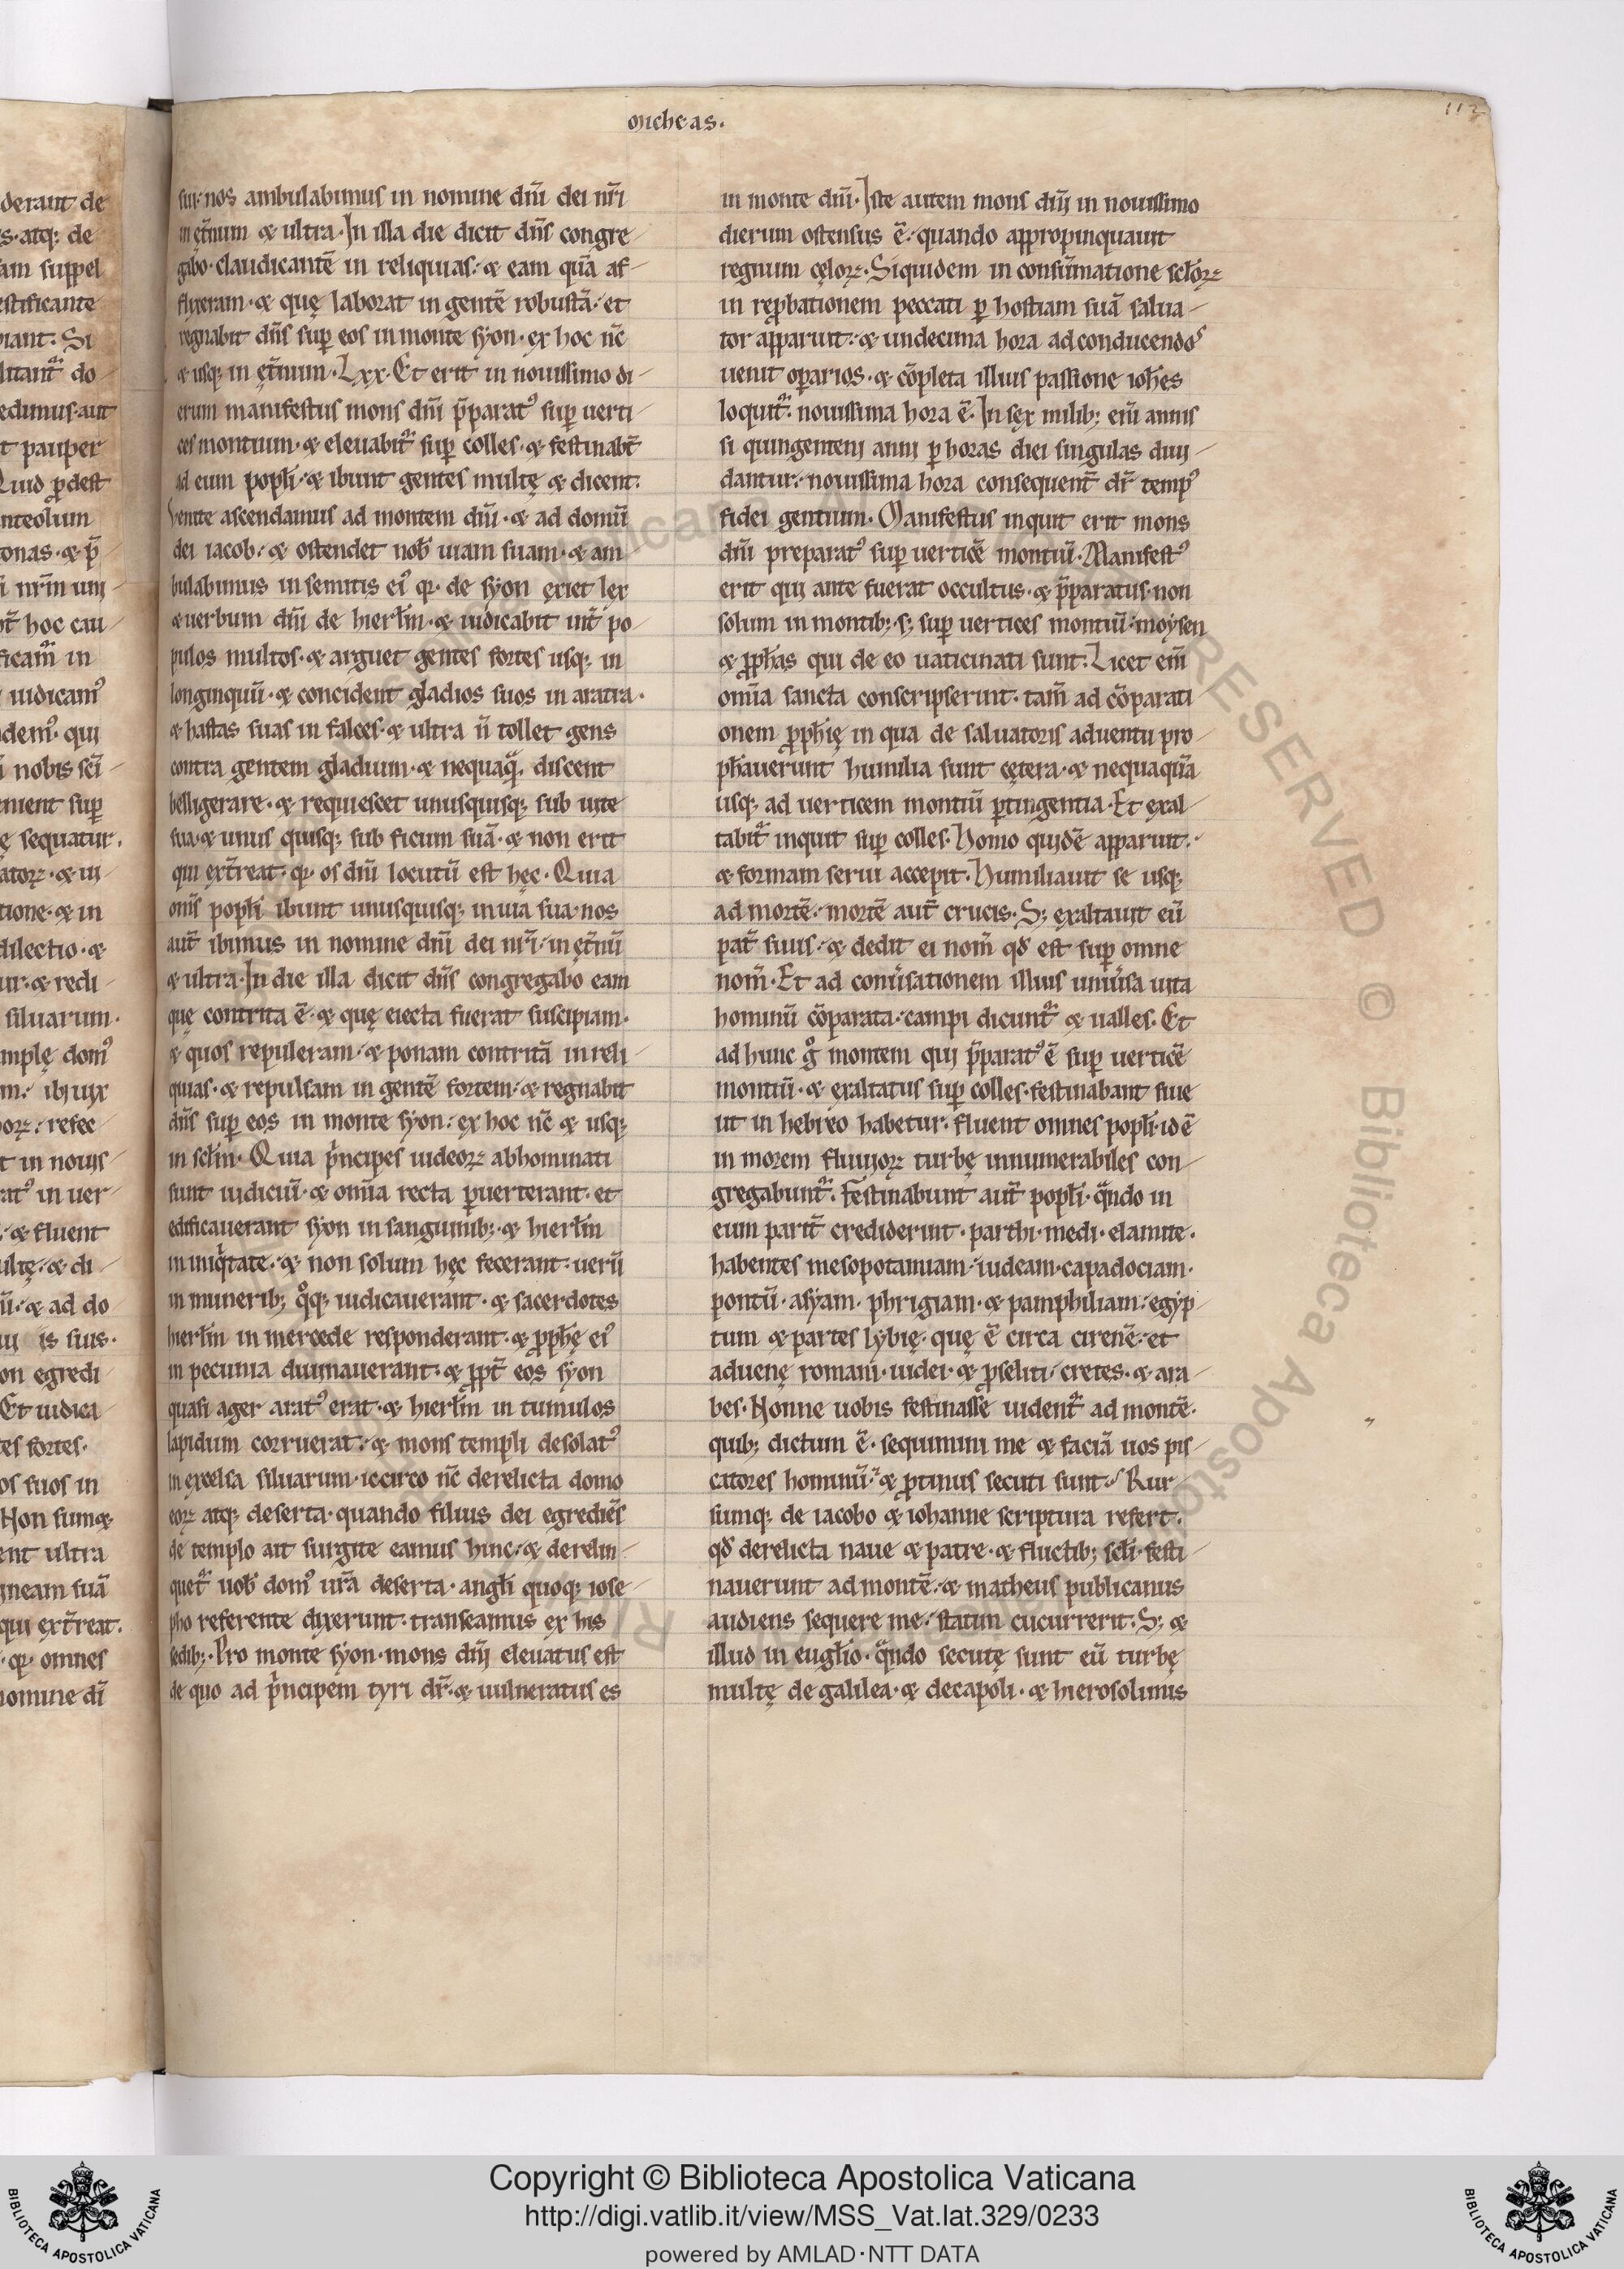 micheas.
113
sui· nos ambulabimus in nomine dñi dei nr̄i
in ęt̄num & ultra. In illa die dicit dñs congre-
gabo· claudicantē in reliquias· & eam quā af-
flixeram· & quę laborat in gentē robustā· et
regnabit dñs sup eos in monte syon· ex hoc nc̄
& usq; in ęt̄num. Lxx. Et erit in nouissimo di-
erum manifestus mons dñi p̄paratꝰ sup uerti-
ces montium· & eleuabit᷑ sup colles· & festinabt̄
ad eum popl̄i· & ibunt gentes multę & dicent·
Venite ascendamus ad montem dñi· & ad domū
dei iacob· & ostendet nob̄ uiam suam· & am-
bulabimus in semitis eiꝰ· q̄· de syon exiet lex
& uerbum dñi de hierl̄m· & iudicabit int̄ po-
pulos multos· & arguet gentes fortes usq; in
longinquū· & concident gladios suos in aratra·
& hastas suas in falces· & ultra ñ tollet gens
contra gentem gladium· & nequaq̄· discent
belligerare· & requiescet unusquisq; sub uite
sua· & unus quisq; sub ficum suā· & non erit
qui ext̄reat· q̄· os dñi locutū est hęc. Quia
om̄s popl̄i ibunt unusquisq; in uia sua· nos
aut̄ ibimus in nomine dñi dei nr̄i· in ęt̄nū
& ultra. In die illa dicit dñs congregabo eam
quę contrita ē· & quę eiecta fuerat suscipiam·
& quos repuleram· & ponam contritā in reli-
quias· & repulsam in gentē fortem· & regnabit
dñs sup eos in monte syon· ex hoc nc̄ & usq;
in scl̄m. Quia p̄ncipes iudeoꝝ abhominati
sunt iudiciū· & om̄ia recta ꝑuerterant· et
edificauerant syon in sanguinib;· & hierl̄m
in iniq̄tate· & non solum hęc fecerant· uerū
in munerib; q̊q; iudicauerant· & sacerdotes
hierl̄m in mercede responderant· & ꝓph̄ę eiꝰ
in pecunia diuinauerant· & ꝓpt̄ eos syon
quasi ager aratꝰ erat· & hierl̄m in tumulos
lapidum corruerat· & mons templi desolatꝰ
in excelsa siluarum· iccirco nc̄ derelicta domo
eoꝝ atq; deserta· quando filius dei egrediēs
de templo ait surgite eamus hinc· & derelin-
quet᷑ uob̄ domꝰ ur̄a deserta· angl̄i quoq; iose-
pho referente dixerunt· transeamus ex his
sedib;· Pro monte syon· mons dñi eleuatus est
de quo ad p̄ncipem tyri dr̄· & uulneratus es
in monte dñi. Iste autem mons dñi in nouissimo
dierum ostensus ē· quando appropinquauit
regnum cęloꝝ. Siquidem in consūmatione scl̄oꝝ
in reꝓbationem peccati ꝑ hostiam suā salua-
tor apparuit· & undecima hora ad conducendos
uenit oꝑarios· & cōpleta illius passione ioh̄es
loquit᷑· nouissima hora ē. In sex milib; eni᷑ annis
si quingenteni anni ꝑ horas diei singulas diui-
dantur· nouissima hora consequent̄ dr̄ tempꝰ
fidei gentium. Manifestus inquit erit mons
dñi preparatꝰ sup uerticē montiū. Manifestꝰ
erit qui ante fuerat occultus· & p̄paratus· non
solum in montib; s; sup uertices montiū· moysen
& ꝓph̄as qui de eo uaticinati sunt. Licet em̄
om̄ia sancta conscripserint· tam̄ ad cōparati-
onem ꝓph̄ię in qua de saluatoris aduentu pro-
ph̄auerunt humilia sunt cętera· & nequaquā
usq; ad uerticem montiū ꝑtingentia. Et exal-
tabit᷑ inquit sup colles. Homo quidē apparuit·
& formam serui accepit. Humiliauit se usq;
ad mortē· mortē aut̄ crucis. S; exaltauit eū
pat̄ suus· & dedit ei nom̄ qđ est sup omne
nom̄. Et ad conūsationem illius uniūsa uita
hominū cōparata· campi dicunt᷑ & ualles. Et
ad hunc g̊ montem qui p̄paratꝰ ē sup uerticē
montiū· & exaltatus sup colles· festinabant siue
ut in hebreo habetur· fluent omnes popl̄i· idē
in morem fluuioꝝ turbę innumerabiles con-
gregabunt᷑. Festinabunt aut̄ popl̄i· q̄ndo in
eum parit̄ crediderint· parthi· medi· elamite·
habentes mesopotamiam· iudeam· capadociam·
pontū· asyam· phrigiam· & pamphiliam· egyp-
tum & partes lybię· quę ē circa cirenē· et
aduenę romani· iudei· & ꝓseliti· cretes· & ara-
bes. Nonne uobis festinasse uident᷑ ad montē·
quib; dictum ē· sequimini me & faciā uos pis-
catores hominū· & ꝓtinus secuti sunt· Rur-
sumq; de iacobo & iohanne scriptura refert·
qđ derelicta naue & patre· & fluctib; scl̄i· festi-
nauerunt ad montē· & matheus publicanus
audiens sequere me· statim cucurrerit. S; &
illud in eugl̄io· q̄ndo secutę sunt eū turbę
multę de galilea· & decapoli· & hierosolimis
Copyright © Biblioteca Apostolica Vaticana
http://digi.vatlib.it/view/MSS_Vat.lat.329/0233
powered by AMLAD·NTT DATA